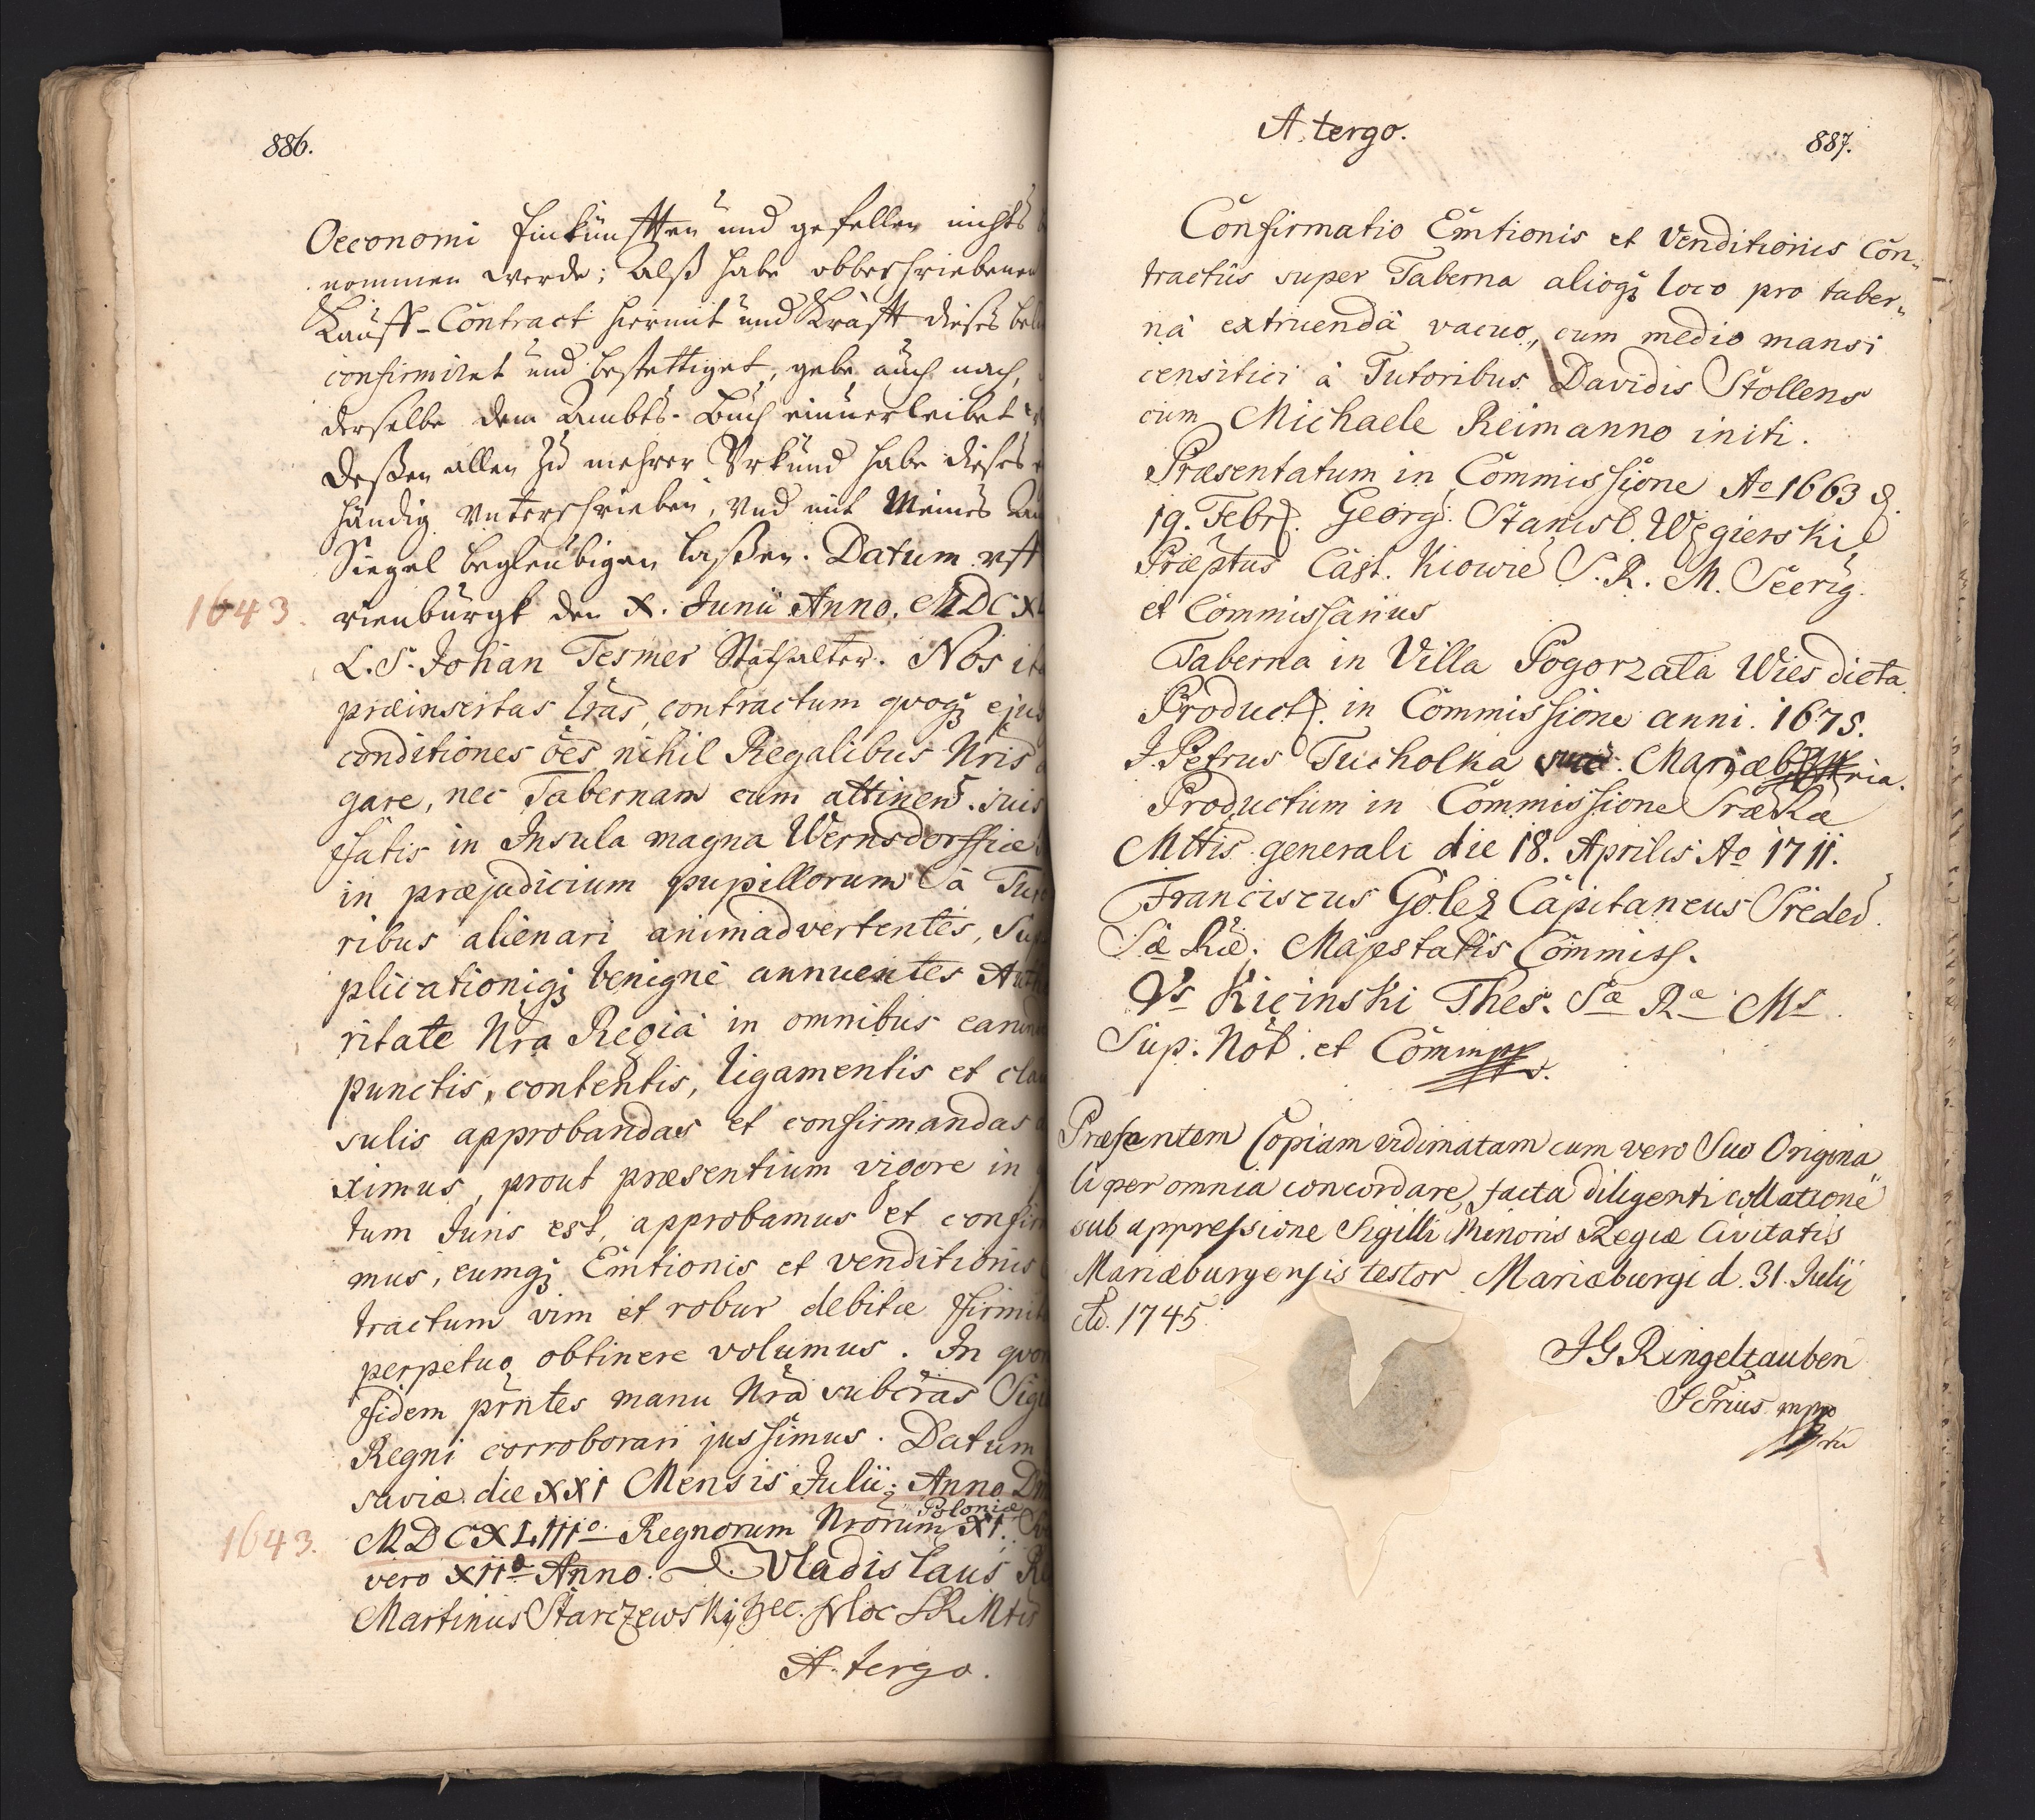 886.
Oeconomi Einkünfften und gefellen nichts
nommen werde; Alß habe obbeschriebenen
Kauff-Contract hiermit und Krafft dieses
confirmiret und bestettiget, gebe auch nach,
derselbe dem Ambts-Buch einuerleibet
Deßen allen zu mehrer Vrkund habe dieses
händig Vnterschrieben, Vnd mit Meines
Siegel beglaubigen laßen. Datum vff
1643. rienburgk den X. Junii Anno. MDCXL
L.S. Johan Tesmer Stathalter. Nos
præinsertas lras, contractum quoq; ejus
conditiones oes nihil Regalibus Nris
gare, nec Tabernam cum attinen. suis
sitatis in Insula magna Wernsdorffice
in præjudicium pupillorum à Tuto
ribus alienari animadvertentes, Sup
plicationiq; benigne annuentes Autho
ritate Nra Regiâ in omnibus earund
punctis, contentis, ligamentis et clau
sulis approbandas et confirmandas
ximus, prout præsentium vigore in
tum Juris est, approbamus et confir
mus, eumq; Emtionis et venditionis
tractum vim et robur debitæ firmit
perpetuo obtinere volumus. In quor
fidem prntes manu Nra subcras Sigi
Regni corroborari jussimus. Datum
saviæ die XXI Mensis Julii; Anno D
1643. MDCXLIIIo Regnorum Nrorum Poloniæ XI.
vero XIIo Anno. Vladislaus R
Martinus Starczewskÿ Sec. SRMtis
A tergo.
A tergo.
887.
Confirmatio Emtionis et Venditionis Con„
tractus super Taberna alioq; loco pro taber„
nâ extruendâ vacuo, cum medio mansi
censitici à Tutoribus Davidis Stollens
cum Michaele Reimanno initi.
Præsentatum in Commissione Ao 1663 d.
19. Febr. Georg. Stanisl. Węgierski
Præptus Cast. Kiowie S. R. M. Secrig.
et Commissarius
Taberna in Villa Pogorzała Wies dicta.
Product. in Commissione anni. 1675.
J. Petrus Tucholka Mariæb
Productum in Commissione Sræ Ræ
Mttis generali die 18. Aprilis Ao 1711.
Franciscus Goltz Capitaneus Sreded.
Sæ Riæ: Majestatis Commiss.
Vs Kicinski Thes. Sæ Ræ Ms.
Sup. Not. et Commiss.
Præsentem Copiam vidimatam cum vero Suo Origina„
li per omnia concordare, facta diligenti collatione
sub appressione Sigilli Minoris Regiæ Civitatis
Mariæburgensis testor Mariæburgi d. 31. Julij
Ao. 1745.
JG Ringeltauben
Scrius mppo